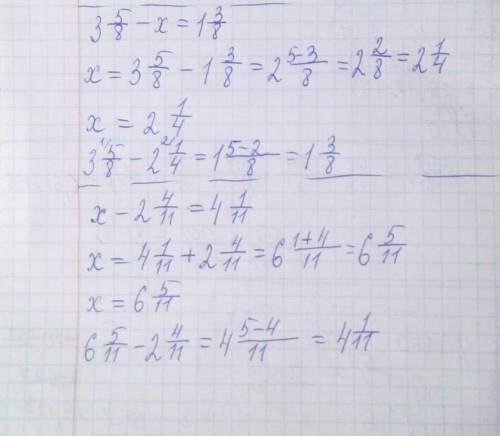 3 5/8 - x = 1 3/8
x = 3 5/8 - 1 3/8 = 2 (5-3)/8 = 2 2/8 = 2 1/4
x = 2 1/4
3 5/8 (1\) - 2 1/4 (2\) = 1 (5-2)/8 = 1 3/8
x - 2 4/11 = 4 1/11
x = 4 1/11 + 2 4/11 = 6 (1+4)/11 = 6 5/11
x = 6 5/11
6 5/11 - 2 4/11 = 4 (5-4)/11 = 4 1/11